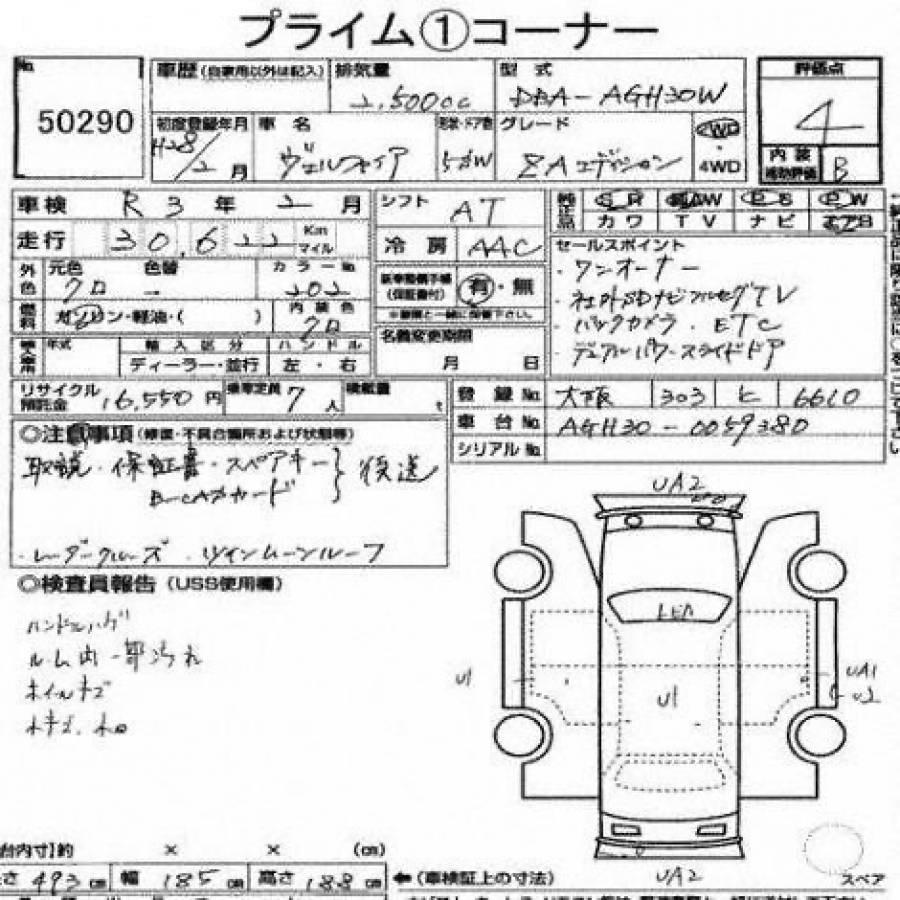 プライム①コーナー
No. 50290
車歴 (自家用以外は記入) 排気量 2,500cc 型式 DBA-AGH30W 評価点 4
初度登録年月 H28/2月 車名 ヴェルファイア 形状・ドア数 5DW グレード ZAエディション 2WD・4WD 内装補助評価 B
車検 R3年2月 シフト AT 純正品 SR AW PS PW
走行 30,622 Km マイル 冷房 AAC カワ TV ナビ エアB
外色 元色 クロ 色替 - カラーNo. 202 新車整備手帳 (保証書付) 有・無
燃料 ガソリン・軽油・( ) 内装色 クロ
セールスポイント
・ワンオーナー
・社外SDナビフルセグTV
・バックカメラ．ETC
・デュアルパワースライドドア
名義変更期限 月 日
輸入車 年式 輸入区分 ハンドル
ディーラー・並行 左・右
リサイクル預託金 16,550円 乗車定員 7人 積載量 t
登録No. 大阪 303 ヒ 6610
車台No. AGH30-0059380
シリアルNo.
◎注意事項 (修復・不具合箇所および状態等)
取説・保証書・スペアキー
B-CASカード 後送
・レーダークルーズ．ツインムーンルーフ
◎検査員報告 (USS使用欄)
ルーム内一部汚れ
ホイルキズ
UA2
U1
U1
UA1
U2
UA2
スペア
台内寸]約 × × (cm)
さ 493cm 幅 185cm 高さ 188cm ←(車検証上の寸法)